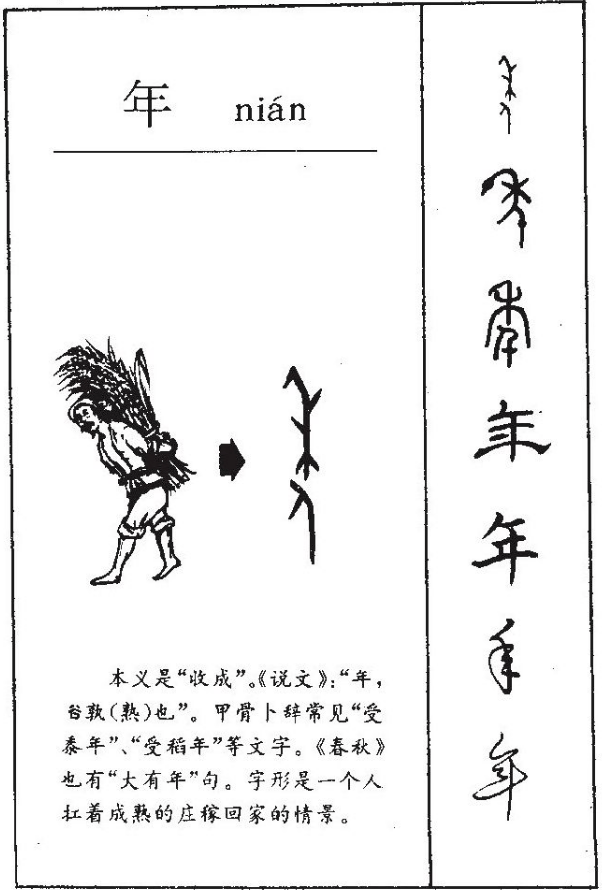 年 nián
本义是“收成”。《说文》:“年，
谷孰(熟)也”。甲骨卜辞常见“受
黍年”、“受稻年”等文字。《春秋》
也有“大有年”句。字形是一个人
扛着成熟的庄稼回家的情景。
年
年
年
年
年
年
年